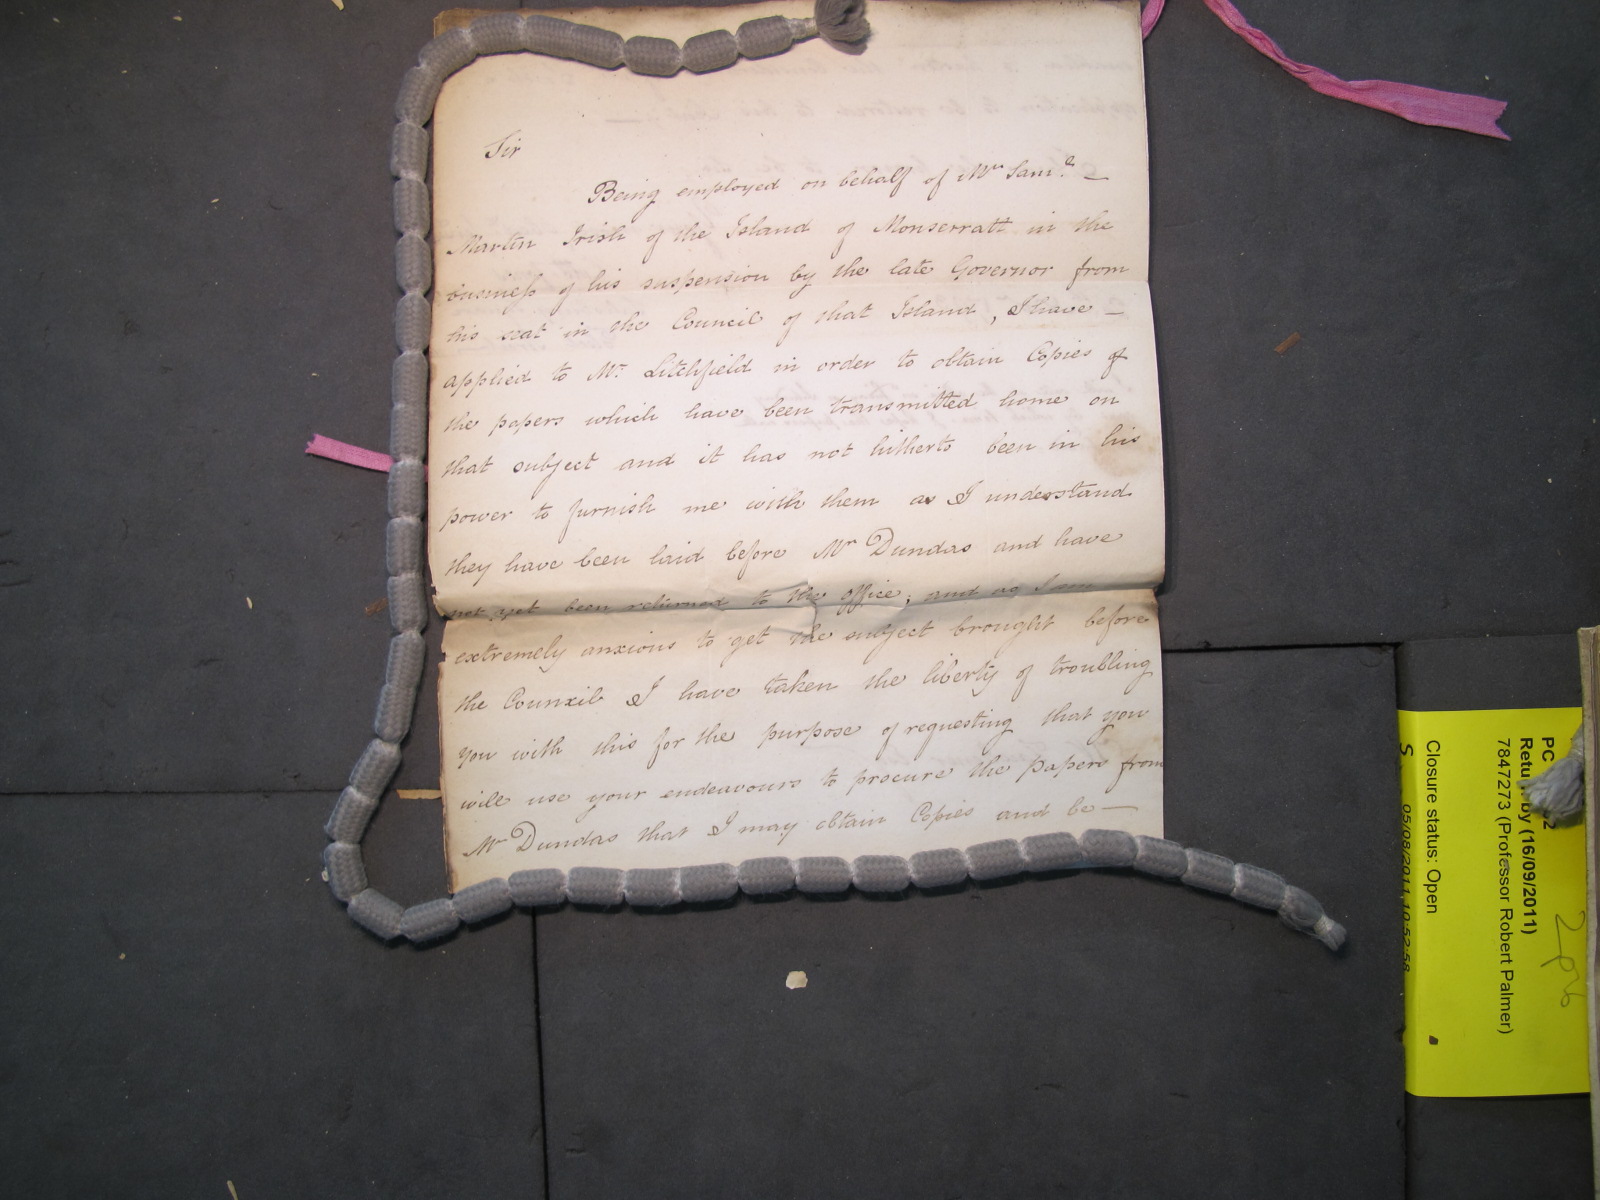 Sir
Being employed on behalf of Mr. Saml. —
Martin Irish of the Island of Monserratt in the
business of his suspension by the late Governor from
his seat in the Council of that Island, I have —
applied to Mr. Litchfield in order to obtain Copies of
the papers which have been transmitted home on
that subject and it has not hitherto been in his
power to furnish me with them as I understand
they have been laid before Mr Dundas and have
not yet been returned to the office; and as I am
extremely anxious to get the subject brought before
the Councxil I have taken the liberty of troubling
you with this for the purpose of requesting that you
will use your endeavours to procure the papers from
Mr Dundas that I may obtain Copies and be —
PC
Retu by (16/09/2011)
7847273 (Professor Robert Palmer)
Closure status: Open
S 05/08/2011 10:52:58